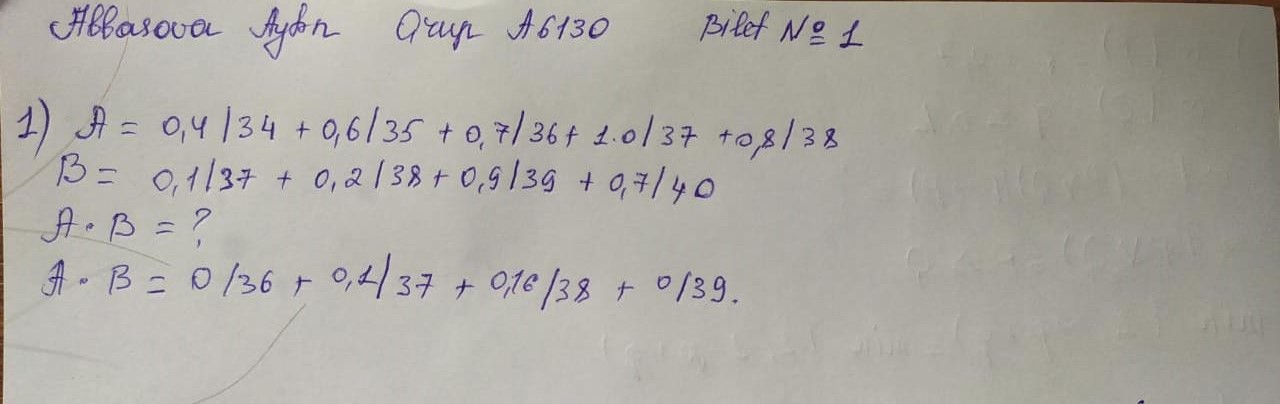 Abbasova Aytən Qrup A6130 Bilet № 1
1) A = 0,4/34 + 0,6/35 + 0,7/36 + 1.0/37 + 0,8/38
B = 0,1/37 + 0,2/38 + 0,9/39 + 0,7/40
A · B = ?
A · B = 0/36 + 0,1/37 + 0,16/38 + 0/39.